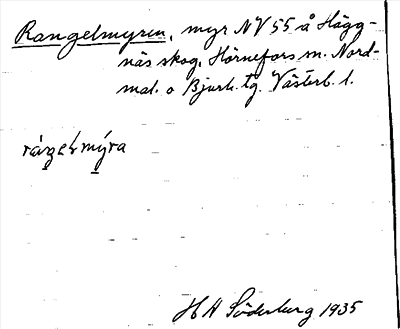 Rangelmyren, myr NV 55 å Hägg-
näs skog, Hörnefors sn. Nord-
mal. o Bjurh. tg. Västerb. l.
HH Söderberg 1935